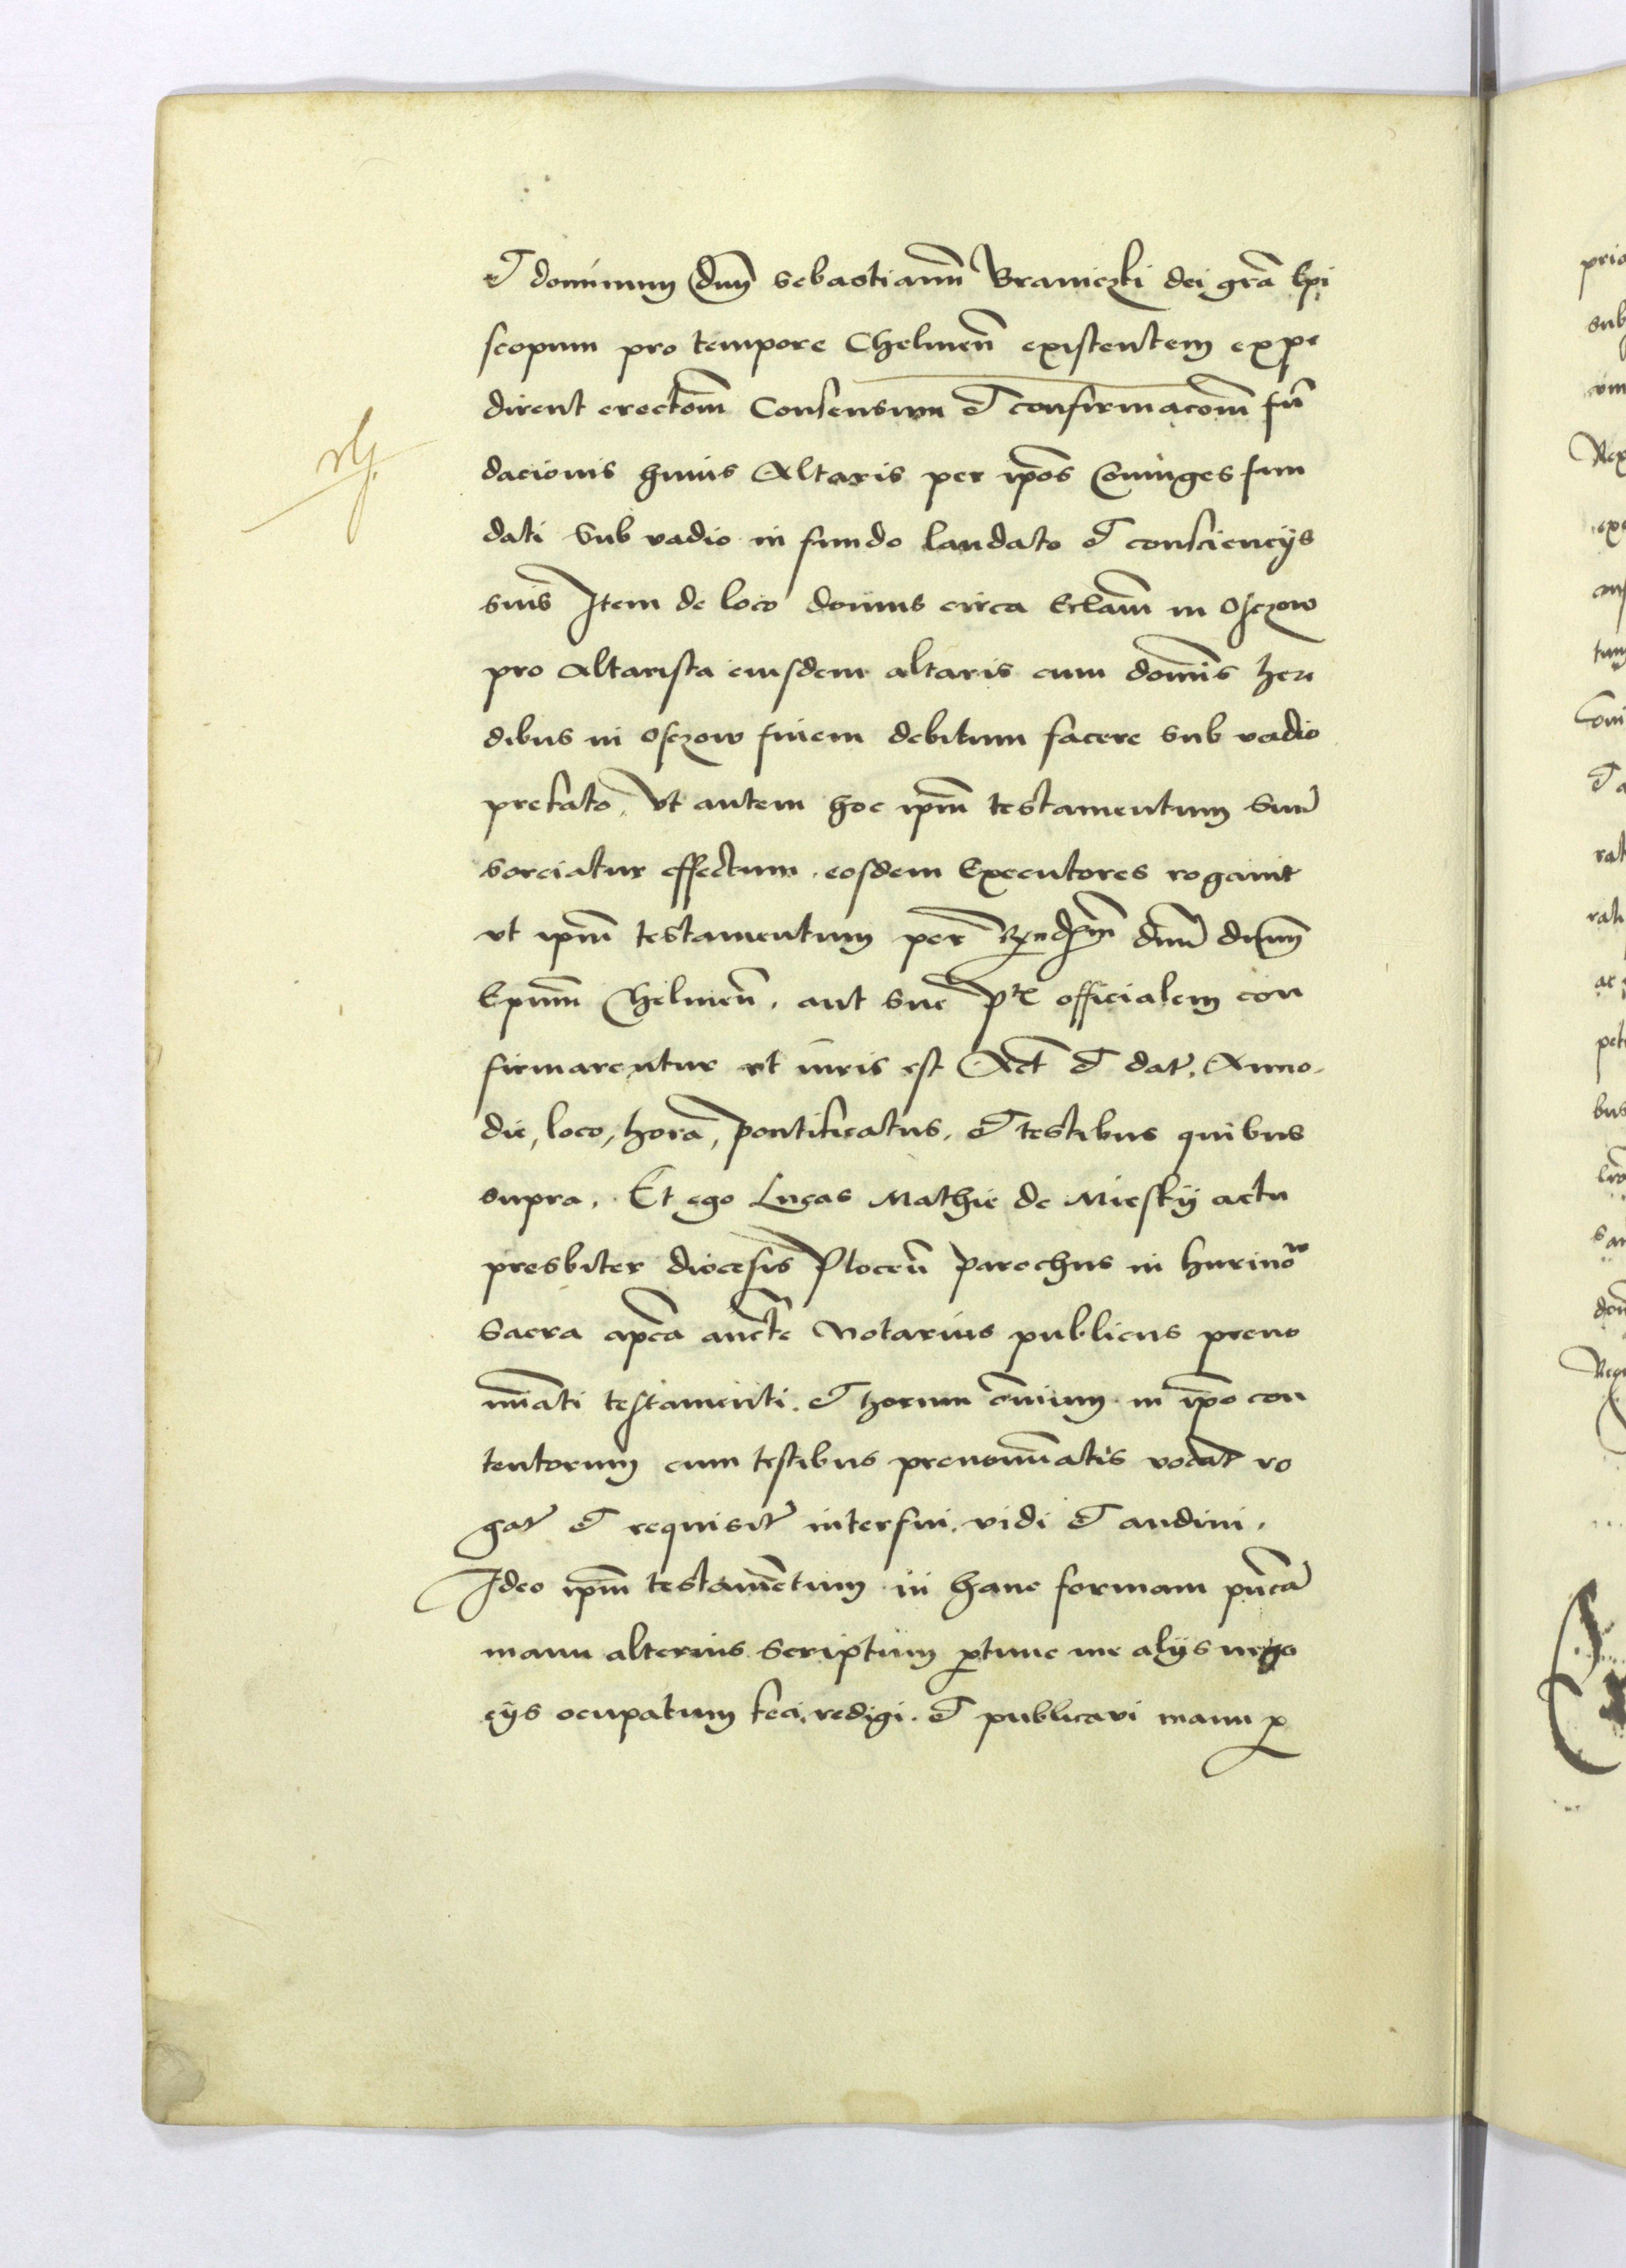 et dominum dnm̄ Sebastianū Braniczki dei gr̄a Epi
scopum pro tempore Chelmen̄ existentem expe
dirent erectōm Consensum et confirmacōm fū
dacionis huius Altaris per ip̄os Coniuges fun
dati Sub vadio in fundo laudato et consciencijs
suis Item de loco domus circa Eccl̄iam in Osczow
pro Altarista eiusdem altaris cum dominis here
dibus in Osczow finem debitum facere sub vadio
prefato, Ut autem hoc ip̄m testamentum suū
sorciatur effectum. eosdem Executores rogauit
vt ip̄m testamentum per Rn̄dſm̄ dnū dnm̄
Ep̄um Chelmen̄. aut sue p̄te officialem con
firmarentur vt iuris est Act̄ et dat̄. Anno.
die, loco, hora, pontificatus. et testibus quibus
supra. Et ego Lucas Mathie de Miesky actu
presbiter diocesis Plocen̄ parochus in hurinow
Sacra ap̄ca aucte Notarius publicus preno
mīati testamenti. et horum om̄ium in ip̄o con
tentorum cum testibus prenomīatis vocat̄ ro
gat̄ et requisit̄ interfui. vidi et audiui.
Ideo ip̄m testamētum in hanc formam pub̄cā
manu alterius Scriptum p̱tunc me alijs nego
cijs ocupatum feci. redigi. et publicavi manu p̱